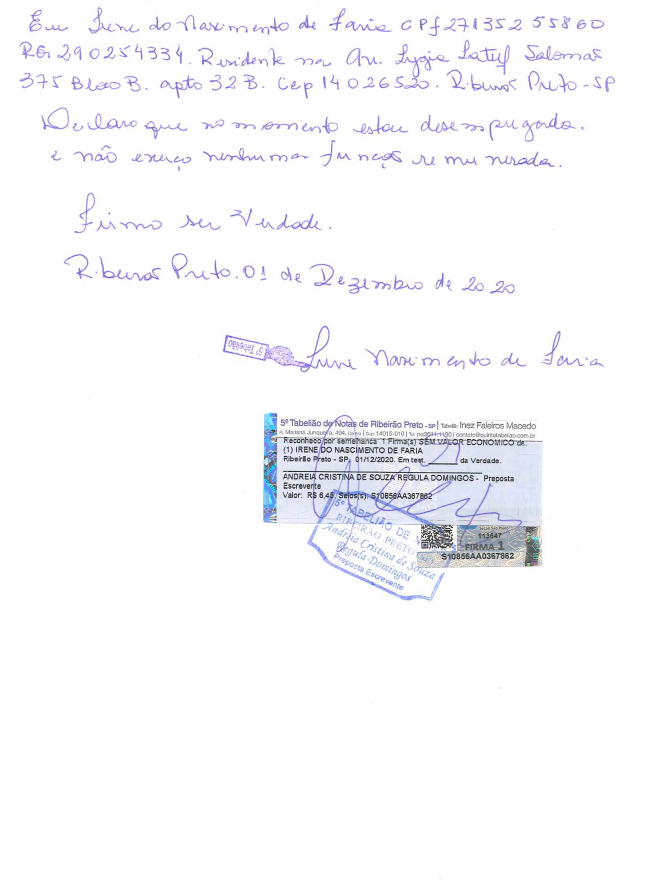 Eu Irene do Nascimento de Faria CPF 271352 55860
RG 290254334. Residente na Av. Lygia Latuf Salomão
375 Bloco B. apto 32 B. Cep 14026520. Ribeirão Preto - SP
Declaro que no momento estou desempregada.
e não exerço nenhuma função remunerada.
Firmo ser Verdade.
Ribeirão Preto. 01 de Dezembro de 2020
5º Tabelião
Irene Nascimento de Faria
5º Tabelião de Notas de Ribeirão Preto - SP | Tabeliã: Inez Faleiros Macedo
R. Mariana Junqueira, 494, Centro | Cep 14015-010 | Tel. | contato@quintotabeliao.com.br
Reconheço por semelhança 1 Firma(s) SEM VALOR ECONOMICO de:
(1) IRENE DO NASCIMENTO DE FARIA
Ribeirão Preto - SP, 01/12/2020. Em test. ______ da Verdade.
ANDREIA CRISTINA DE SOUZA REGULA DOMINGOS - Preposta
Escrevente
Valor: R$ 6,45, Selos(s): S10856AA367862
5º TABELIÃO DE
RIBEIRÃO PRETO
Andréia Cristina de Souza
Regula Domingos
Preposta Escrevente
113647
FIRMA 1
S10856AA0367862